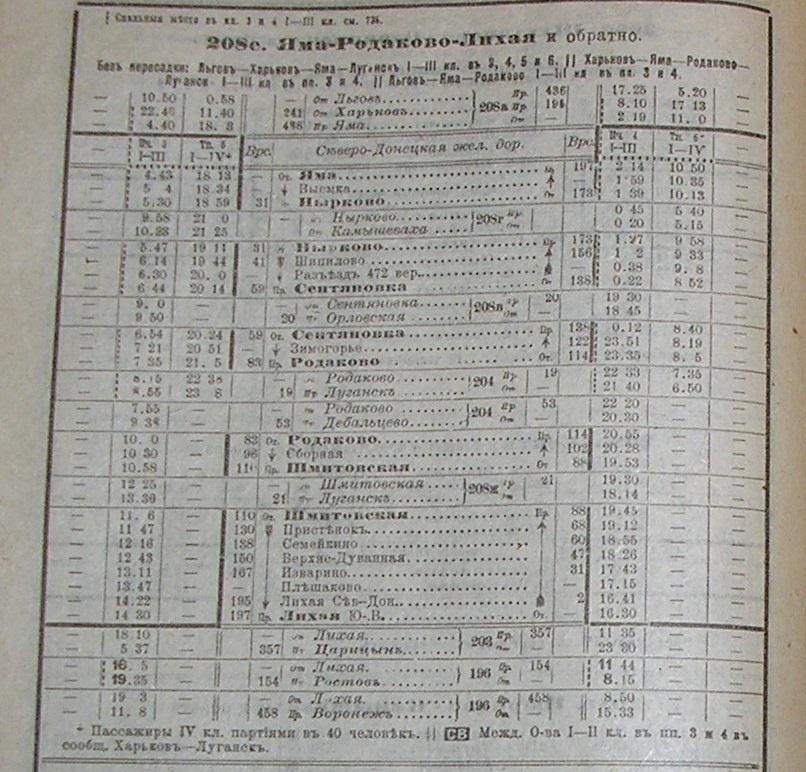 Спальныя мѣста въ пп. 3 и 4 I—III кл. см.
208с. Яма-Родаково-Лихая и обратно.
Безъ пересадки: Льговъ—Харьковъ—Яма—Луганскъ I—III кл. въ 3, 4, 5 и 6. || Харьковъ—Яма—Родаково—
Луганскъ I—III кл въ пп. 3 и 4. || Льговъ—Яма—Родаково I—III кл въ пп. 3 и 4.
— 10.50 0.58 — От Льговъ 208а Пр. 436 17.25 5.20 —
— 22.40 11.40 241 От Харьковъ 195 8.10 17 13 —
— 4.40 18. 3 436 Пр Яма От — 2.19 11. 0 —
I—III I—IV* Врс. Сѣверо-Донецкая жел. дор. Врс. I—III I—IV
— 4.43 18 13 — От. Яма Пр 197 2 14 10 50 —
— 5 4 18.34 Выемка — 1 59 10.35 —
— 5.30 18 59 31 Нырково От 173 1 39 10.13 —
9.58 21 0 — Нырково 208г Пр — 0 45 5 40
10.23 21 25 От Камышеваха 0 20 5.15
— 5.47 19 11 31 Нырково Пр. 173 1.27 9 58 —
6.14 19 44 41 Шипилово 156 1 2 9 33 —
— 6.30 20. 0 — Разъѣздъ 472 вер. — 0.38 9. 8 —
— 6 44 20 14 59 Пр Сентяновка От 138 0.22 8 52 —
— 9. 0 — — Сентяновка 208в Пр 20 19 30 — —
— 9 50 — 20 Орловская От 18 45 — —
— 6.54 20.24 59 От. Сентяновка Пр. 138 0.12 8.40 —
— 7 21 20 51 Зимогорье 122 23.51 8.19 —
— 7 35 21. 5 83 Пр. Родаково От. 114 23.35 8. 5 —
22 38 — Родаково 204 Пр 19 22 33 7.35 —
8.55 23 8 19 Пр Луганскъ От — 21 40 6.50 —
— 7.55 — — Родаково 204 Пр 53 22 20 — —
— 9 38 — 53 Дебальцево От — 20.30 — —
— 10. 0 — 83 От. Родаково Пр. 114 20.55 — —
— 10 30 — 96 Сборная 102 20.28 — —
— 10.58 — 110 Пр. Шмитовская От 88 19.53 — —
— 12 25 — — Шмитовская 208ж Пр 21 19.30 — —
— 13.39 — 21 Луганскъ От — 18.14 — —
— 11. 6 — 110 От. Шмитовская Пр. 88 19.45 — —
— 11 47 — 130 Пристѣнокъ 68 19.12 — —
— 12 16 — 138 Семейкино 60 18.55 — —
— 12 43 — 150 Верхне-Дуванная 47 18 26 — —
— 13.11 — 167 Изварино 31 17 43 — —
— 13.47 — Плѣшаково — 17.15 — —
— 14.22 — 195 Лихая Сѣв-Дон. 2 16.41 — —
— 14 30 — 197 Пр. Лихая Ю-.В. От. — 16.30 — —
— 18 10 — — Лихая. 203 Пр. 357 11 35 — —
— 5 37 — 357 Царицынъ От — — —
— 16. 5 — — от Лихая. 196 Пр. 154 11 44 — —
— 19.35 — 154 Ростовъ От — 8.15 — —
— 19 3 — — От. Лихая. 196 Пр. 458 8.50 — —
— 11. 8 — 458 Пр. Воронежъ От — 15.33 — —
* Пассажиры IV кл. партіями въ 40 человѣкъ. || СВ Межд. О-ва I—II кл. въ пп. 3 и 4 въ
сообщ. Харьковъ—Луганскъ.